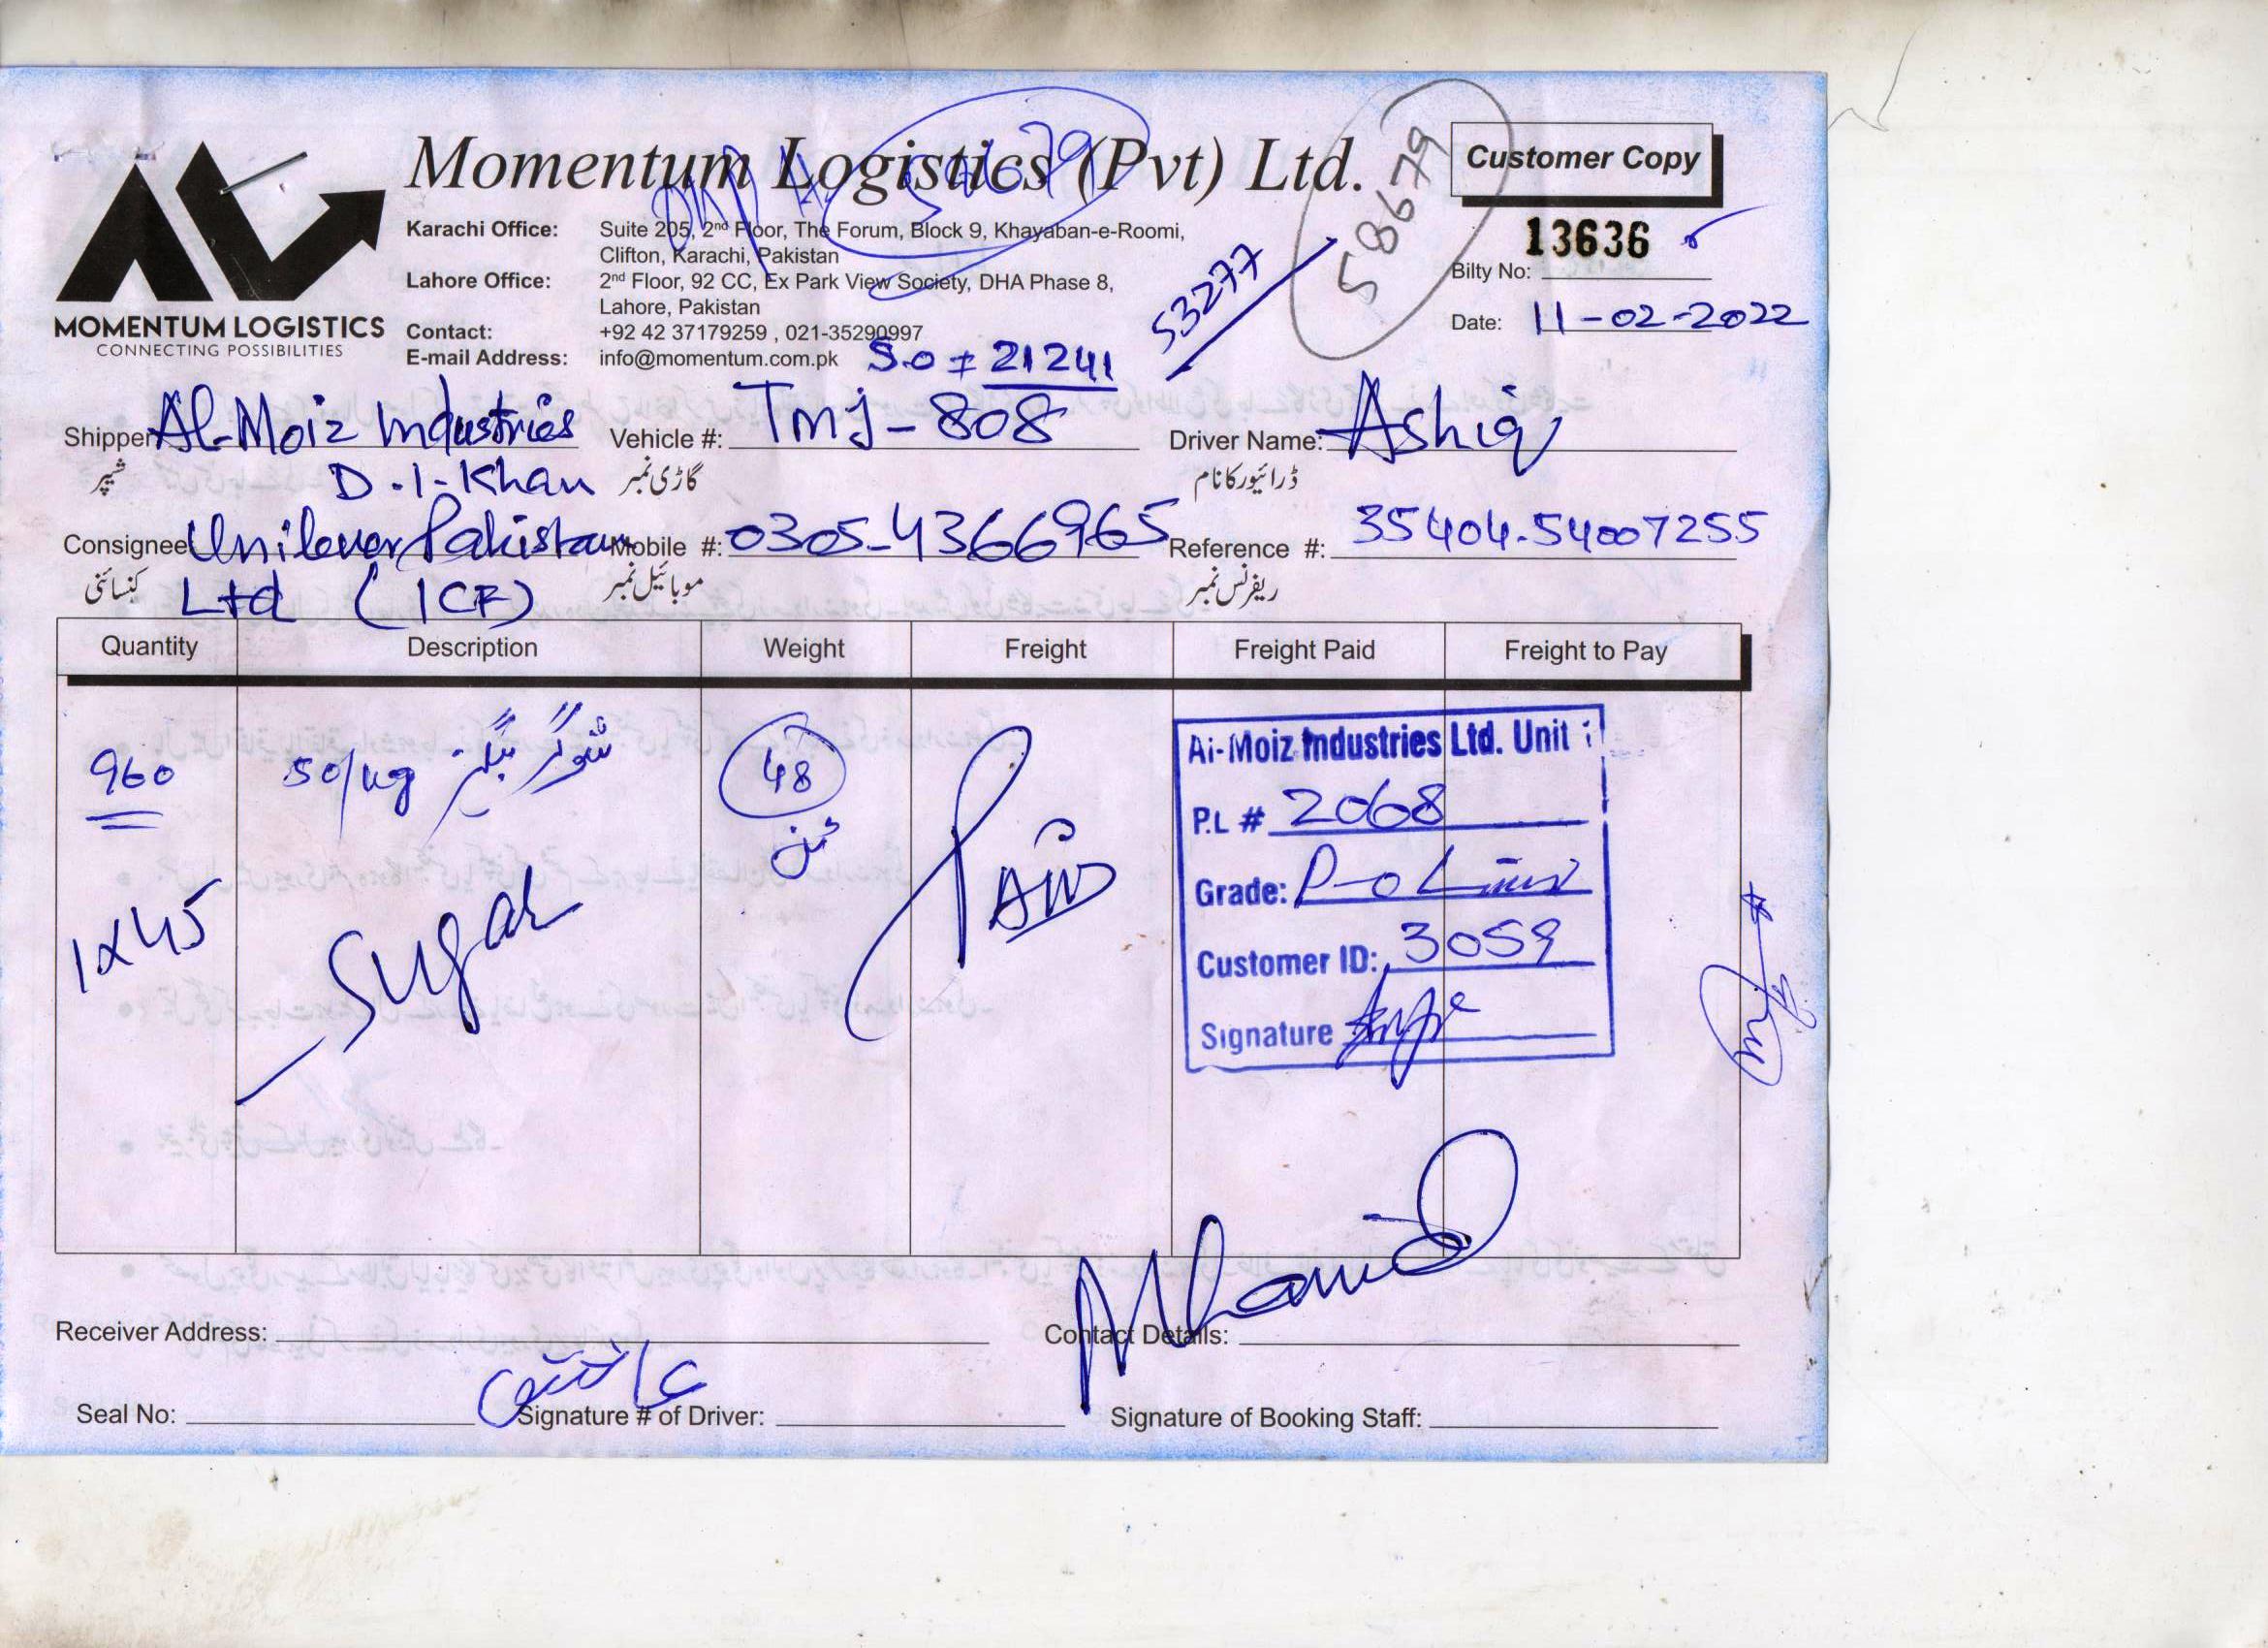 Momentum Logistics (Pvt) Ltd.
Customer Copy
58679
MOMENTUM LOGISTICS
CONNECTING POSSIBILITIES
Karachi Office: Suite 205, 2nd Floor, The Forum, Block 9, Khayaban-e-Roomi,
Clifton, Karachi, Pakistan
Lahore Office: 2nd Floor, 92 CC, Ex Park View Society, DHA Phase 8,
Lahore, Pakistan
Contact: +92 42 37179259 , 021-35290997
E-mail Address: info@momentum.com.pk
S.O # 21241
53277
13636
Bilty No:
Date: 11-02-2022
Shipper Al-Moiz Industries Vehicle #: TMJ-808 Driver Name: Ashiq
شیپر D.I.Khan گاڑی نمبر ڈرائیور کا نام
Consignee Unilever Pakistan Mobile #: 0305-4366965 Reference #: 35404-54007255
کنسائنی Ltd (ICF) موبائیل نمبر ریفرنس نمبر
Quantity Description Weight Freight Freight Paid Freight to Pay
960 50/kg شوگر بیگز 48 ٹن Paid
1x45 Sugar
Al-Moiz Industries Ltd. Unit
P.L # 2068
Grade:
Customer ID: 3059
Signature
Receiver Address: Contact Details:
عاشق
Seal No: Signature # of Driver: Signature of Booking Staff: